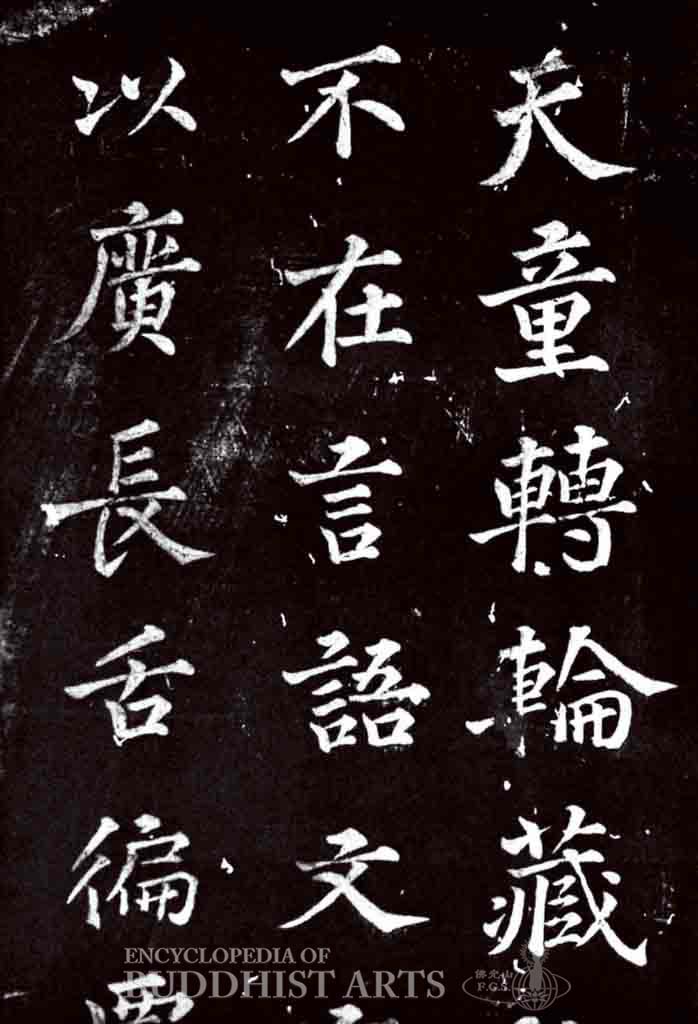 天童轉輪藏
不在言語文
以廣長舌徧
ENCYCLOPEDIA OF
BUDDHIST ARTS
佛光山
F.G.S.